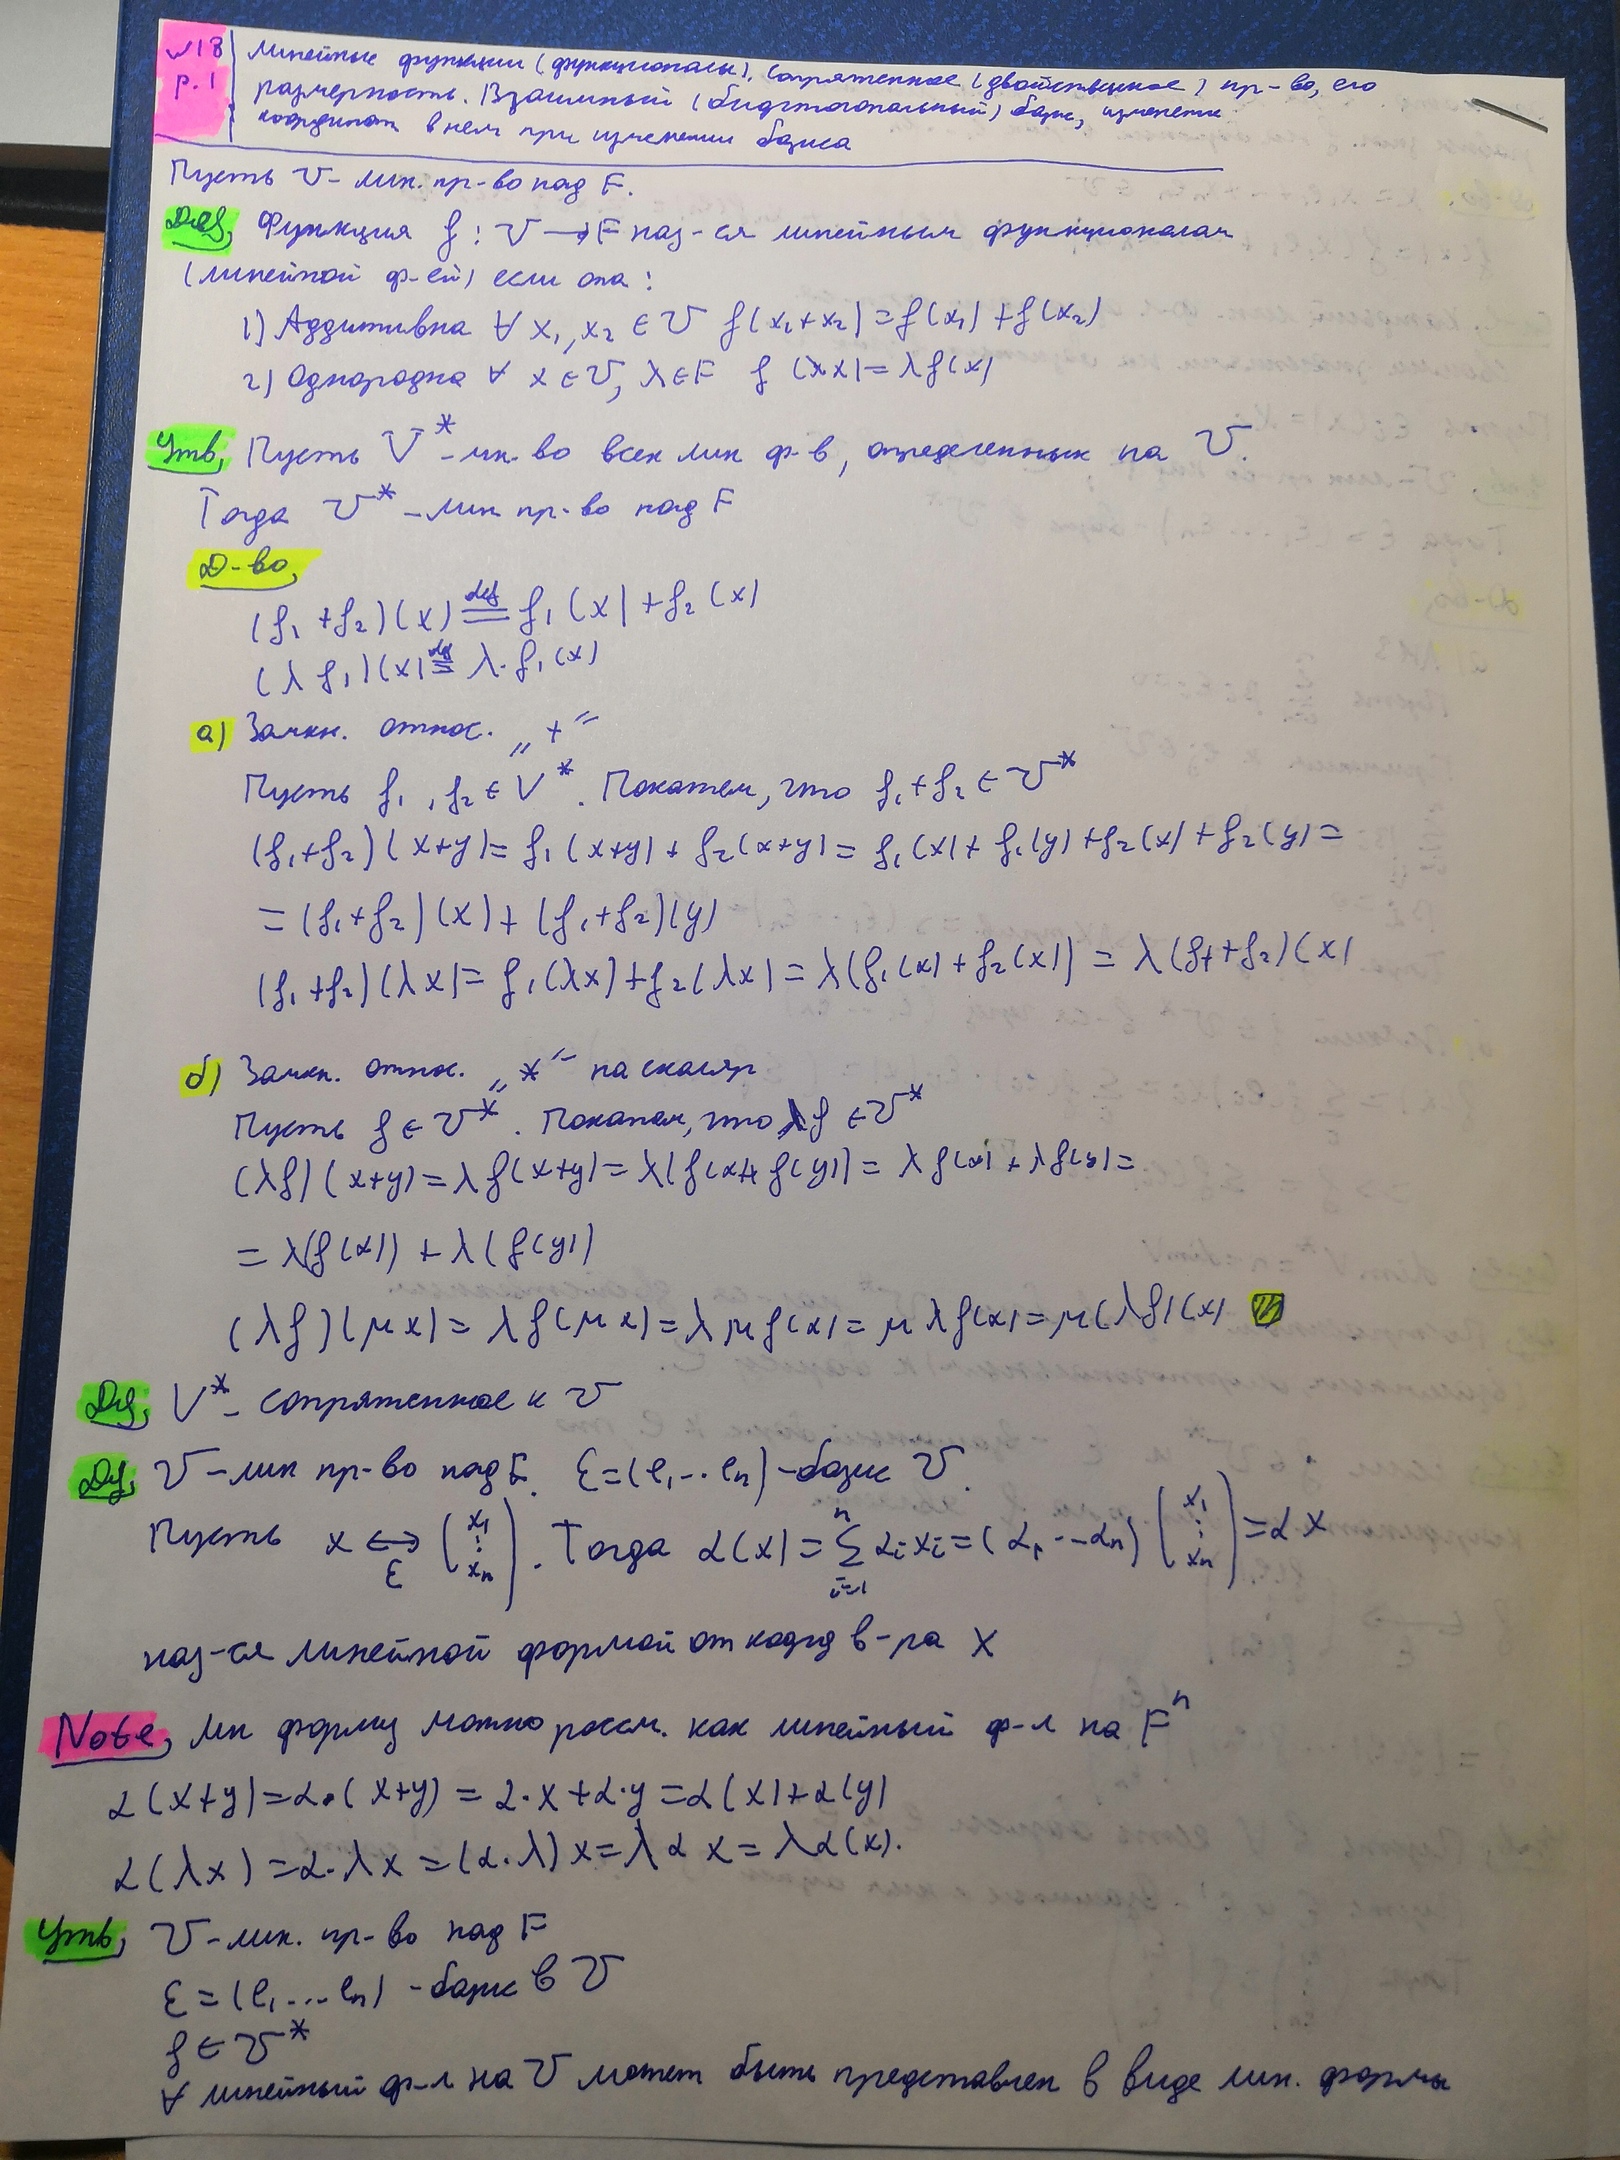 №18 Линейные функции (функционалы). Сопряженное (двойственное) пр-во, его
р.1 размерность. Взаимный (биортогональный) базис, изменение
координат в нем при изменении базиса
Пусть V - лин. пр-во над F.
Def, Функция f: V → F наз-ся линейным функционалом
(линейной ф-ей) если она:
1) Аддитивна ∀ x₁, x₂ ∈ V f(x₁+x₂)=f(x₁)+f(x₂)
2) Однородна ∀ x ∈ V, λ∈F f(λx)=λf(x)
Утв, Пусть V* - мн-во всех лин ф-в, определенных на V.
Тогда V* - лин пр-во над F
Д-во,
(f₁+f₂)(x) def= f₁(x)+f₂(x)
(λf₁)(x) def= λ·f₁(x)
а) Замкн. относ. „+“
Пусть f₁, f₂ ∈ V*. Покажем, что f₁+f₂ ∈ V*
(f₁+f₂)(x+y)=f₁(x+y)+f₂(x+y)=f₁(x)+f₁(y)+f₂(x)+f₂(y)=
=(f₁+f₂)(x)+(f₁+f₂)(y)
(f₁+f₂)(λx)=f₁(λx)+f₂(λx)=λ(f₁(x)+f₂(x))=λ(f₁+f₂)(x)
б) Замкн. относ. „*“ на скаляр
Пусть f ∈ V*. Покажем, что λf ∈ V*
(λf)(x+y)=λf(x+y)=λ(f(x)+f(y))=λf(x)+λf(y)=
=λ(f(x))+λ(f(y))
(λf)(μx)=λf(μx)=λμf(x)=μλf(x)=μ(λf)(x)
Def, V* - сопряженное к V
Def, V - лин пр-во над F. Ɛ=(e₁...eₙ) - базис V.
Пусть x ⟷Ɛ (x₁ ⋮ xₙ). Тогда α(x)=∑ⁿᵢ₌₁ αᵢxᵢ=(α₁...αₙ)(x₁ ⋮ xₙ)=αx
наз-ся линейной формой от коорд в-ра x
Note, лин форму можно рассм. как линейный ф-л на Fⁿ
α(x+y)=α·(x+y)=α·x+α·y=α(x)+α(y)
α(λx)=α·λx=(α·λ)x=λαx=λα(x).
Утв, V - лин. пр-во над F
Ɛ=(e₁...eₙ) - базис в V
f ∈ V*
∀ линейный ф-л на V может быть представлен в виде лин. формы